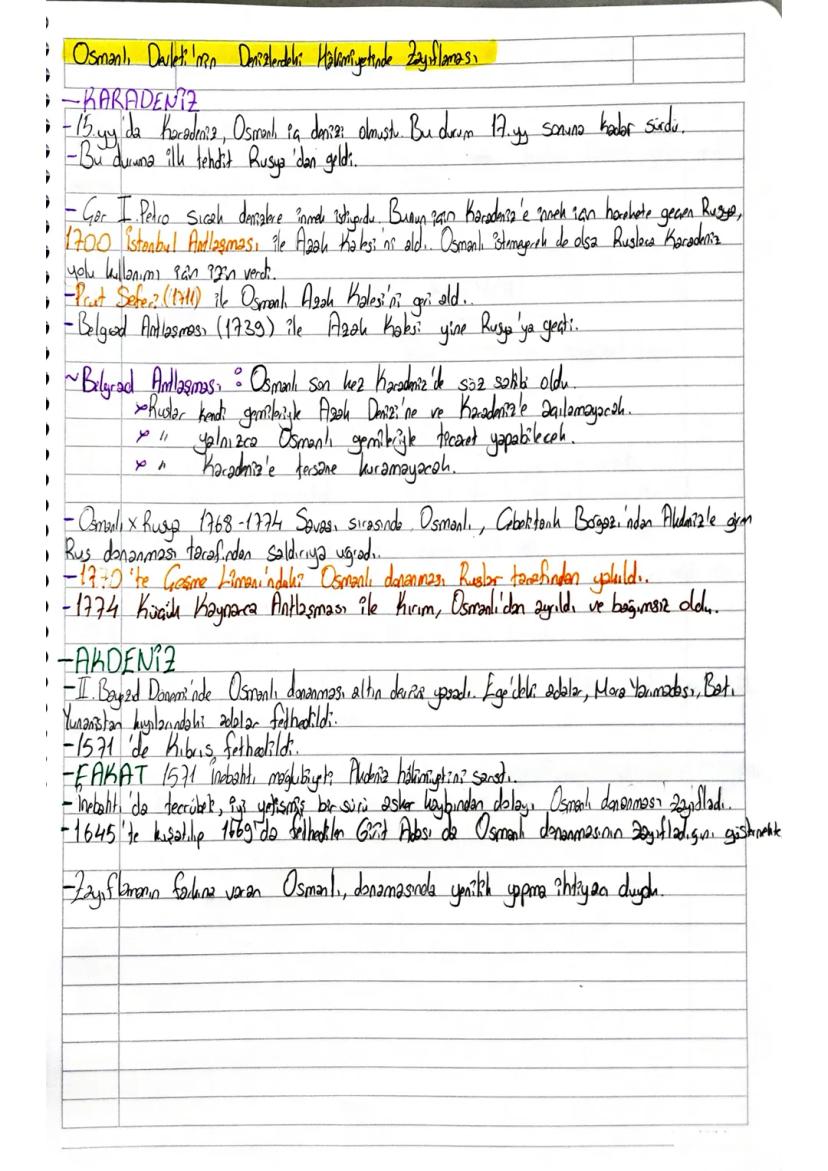 Osmanlı Devleti'nin Denizlerdeki Hâkimiyetinde Zayıflaması
-KARADENİZ
-15.yy'da Karadeniz, Osmanlı iç denizi olmuştu. Bu durum 17.yy sonuna kadar sürdü.
-Bu duruma ilk tehdit Rusya'dan geldi.
-Çar I. Petro sıcak denizlere inmek istiyordu. Bunun için Karadeniz'e inmek için harekete geçen Rusya,
1700 İstanbul Antlaşması ile Azak Kalesi'ni aldı. Osmanlı istemeyerek de olsa Ruslara Karadeniz
yolu kullanımı için izin verdi.
-Prut Seferi (1711) ile Osmanlı Azak Kalesi'ni geri aldı.
-Belgrad Antlaşması (1739) ile Azak Kalesi yine Rusya'ya geçti.
~Belgrad Antlaşması: Osmanlı son kez Karadeniz'de söz sahibi oldu.
Ruslar kendi gemileriyle Azak Denizi'ne ve Karadeniz'e açılamayacak.
" yalnızca Osmanlı gemileriyle ticaret yapabilecek.
" Karadeniz'e tersane kuramayacak.
-Osmanlı x Rusya 1768-1774 Savaşı sırasında Osmanlı, Cebelitarık Boğazı'ndan Akdeniz'e giren
Rus donanması tarafından saldırıya uğradı.
-1770'te Çeşme Limanı'ndaki Osmanlı donanması Ruslar tarafından yakıldı.
-1774 Küçük Kaynarca Antlaşması ile Kırım, Osmanlı'dan ayrıldı ve bağımsız oldu.
-AKDENİZ
-II. Bayezid Dönemi'nde Osmanlı donanması altın devrini yaşadı. Ege'deki adalar, Mora Yarımadası, Batı
Yunanistan kıyılarındaki adalar fethedildi.
-1571'de Kıbrıs fethedildi.
-FAKAT 1571 İnebahtı mağlubiyeti Akdeniz hâkimiyetini sarstı.
-İnebahtı'da tecrübeli, iyi yetişmiş bir sürü asker kaybından dolayı Osmanlı donanması zayıfladı.
-1645'te kuşatılıp 1669'da fethedilen Girit Adası da Osmanlı donanmasının zayıfladığını göstermekte
-Zayıflamanın farkına varan Osmanlı, donamasında yenilik yapma ihtiyacı duydu.